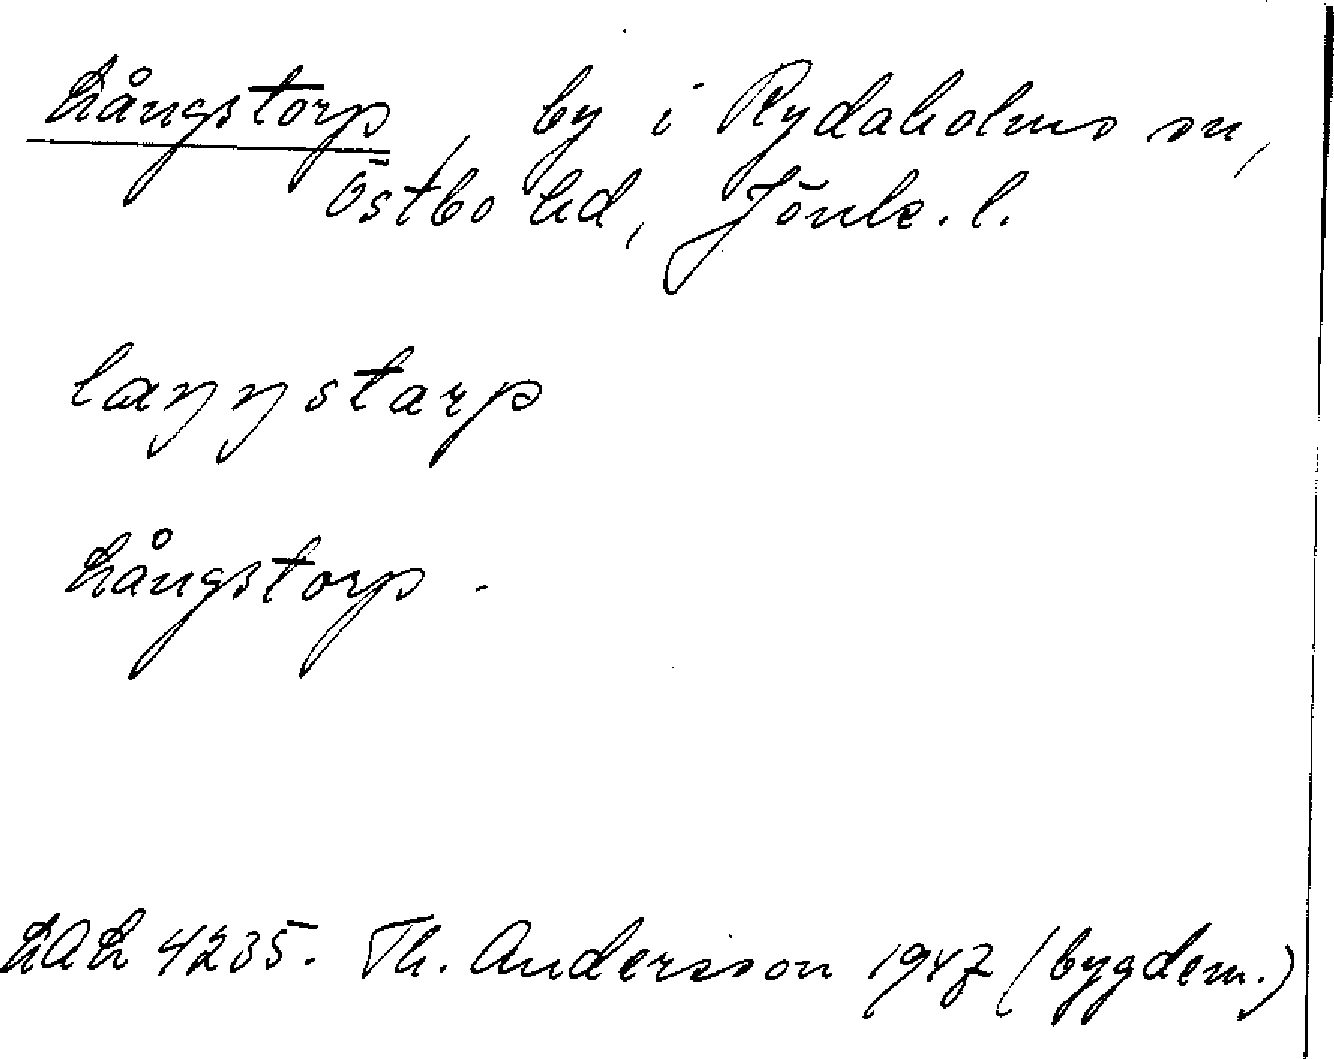 Långstorp, by i Rydaholms sn,
Östbo hd, Jönk. l.
laŋŋstarp
Långstorp.
LAL 4235. Th. Andersson 1947 (bygdem.)